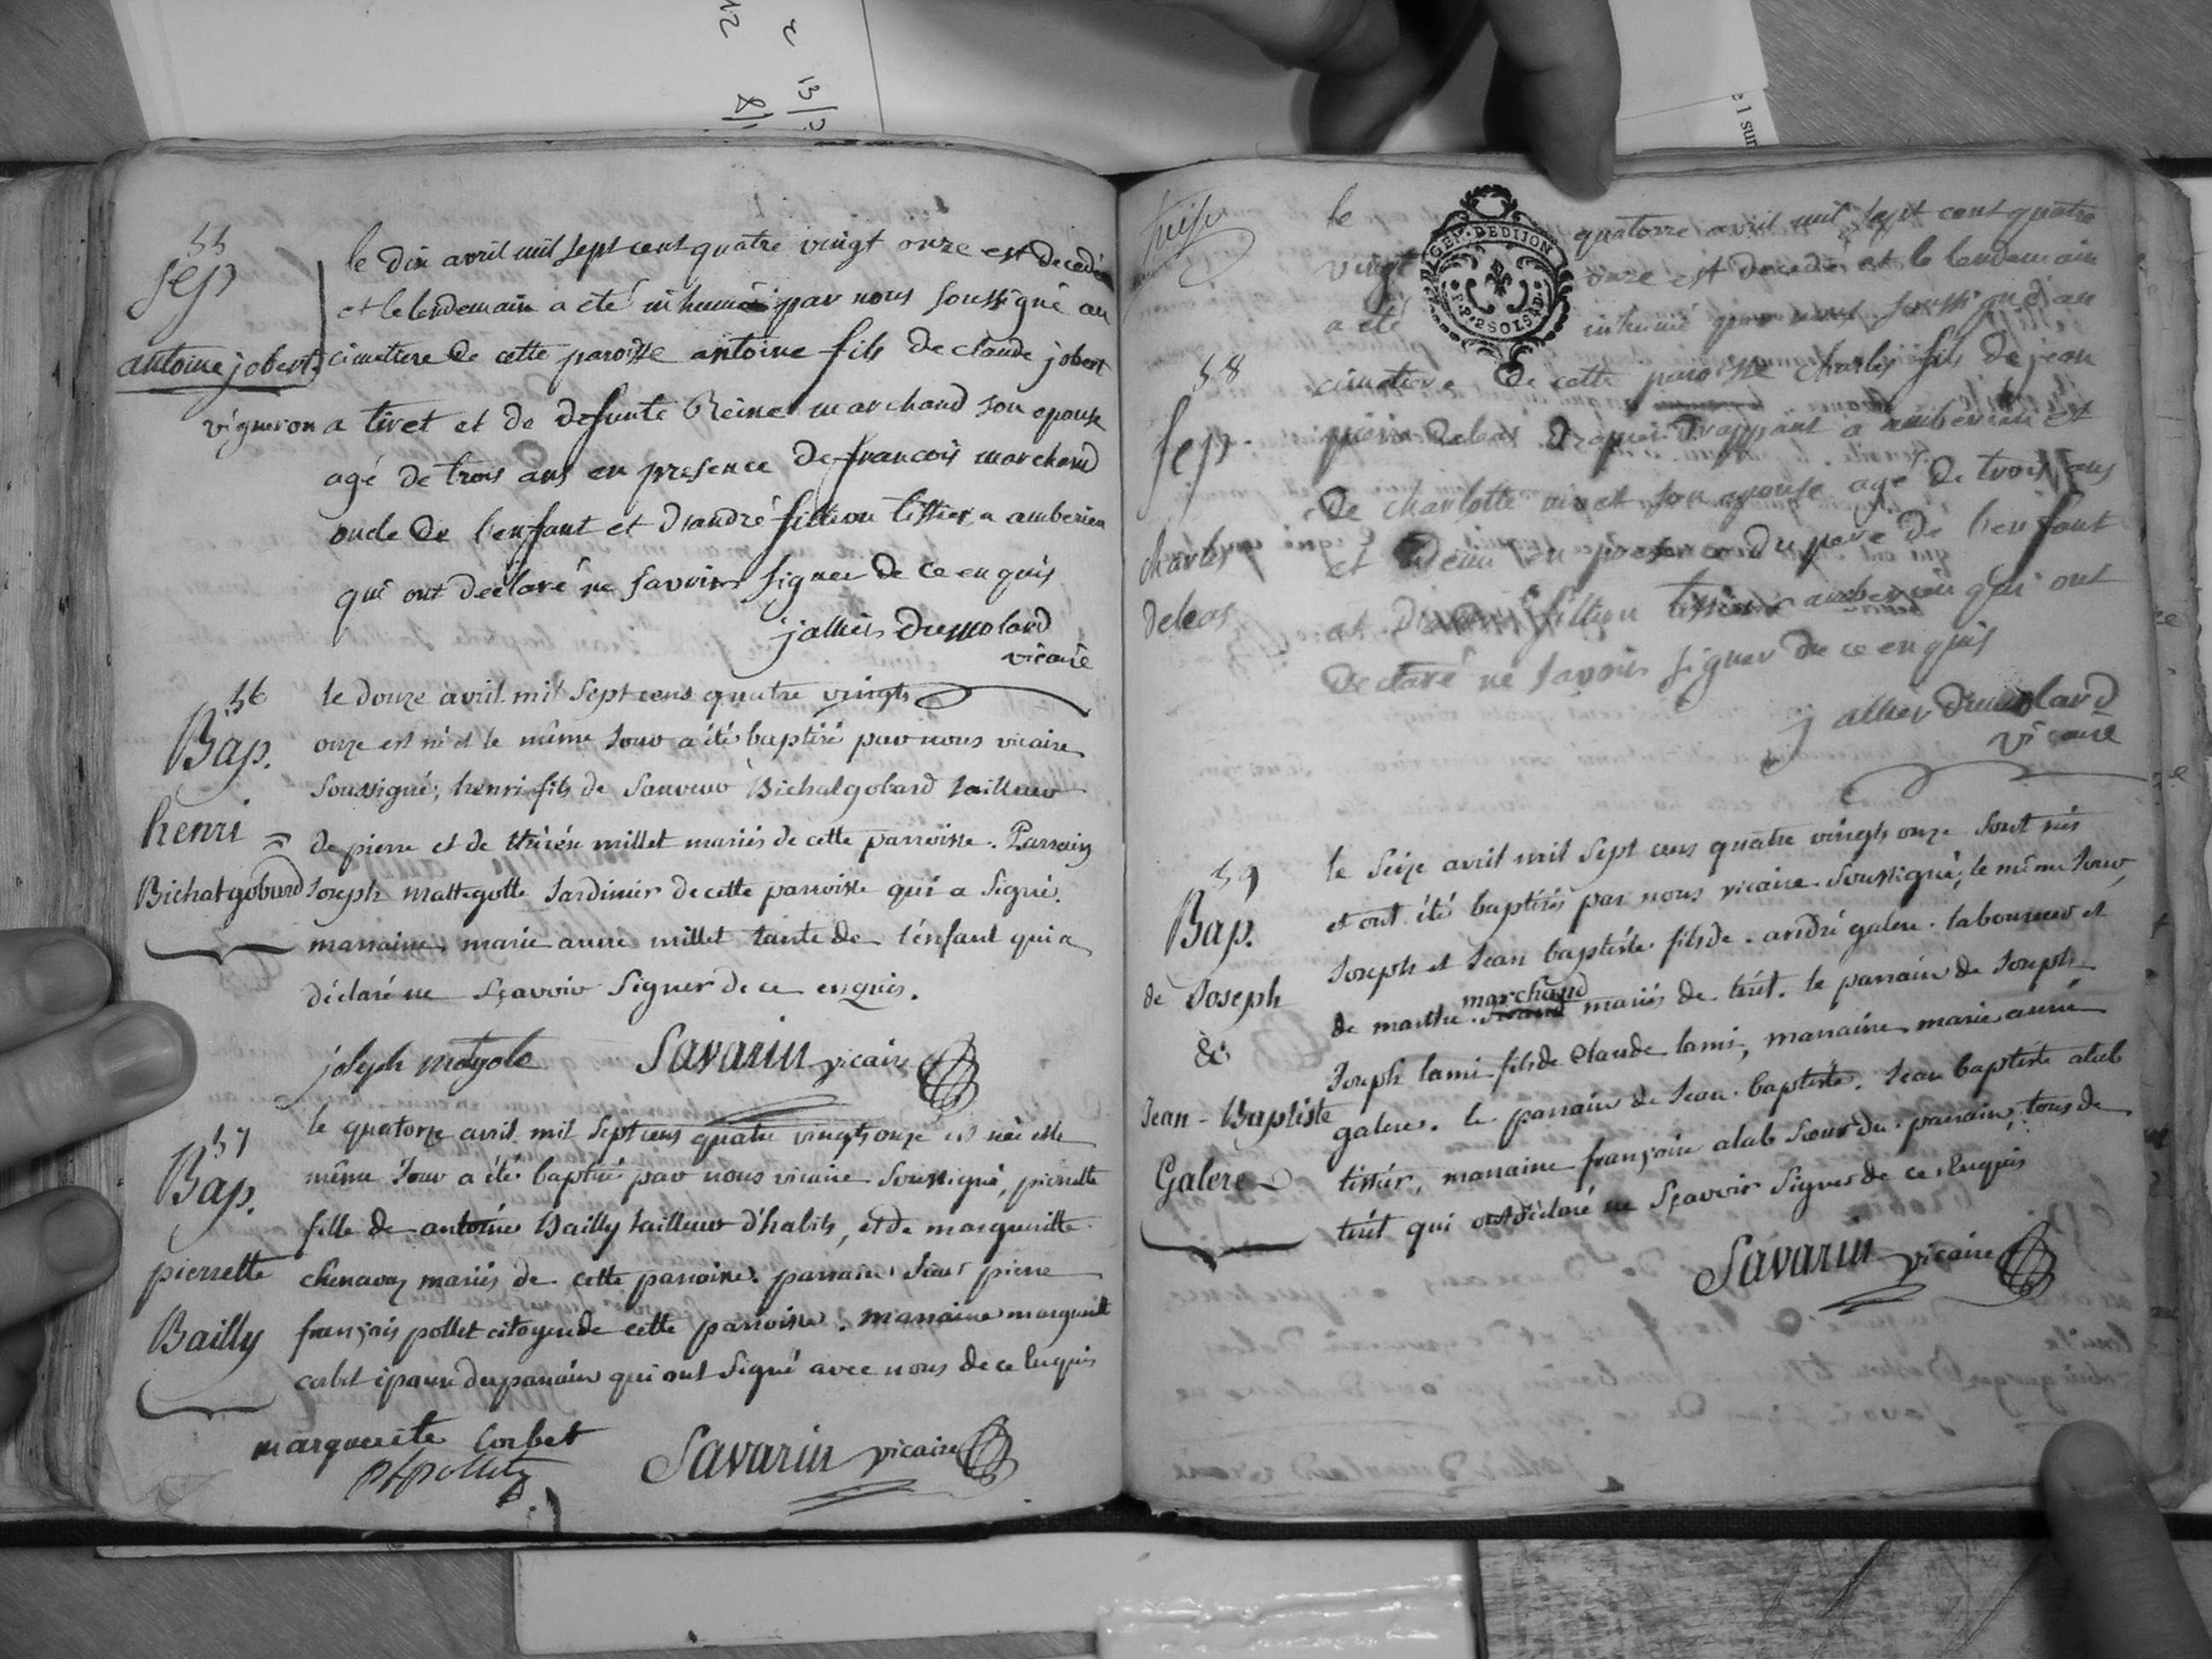 55
Sep
antoine jobert
le dix avril mil sept cent quatre vingt onze est decedé
et le lendemain a eté inhumé par nous soussigné au
cimetiere de cette paroisse antoine fils de claude jobert
vigneron a tiret et de defunte Reine marchand son epouse
agé de trois ans en presence de francois marchand
oncle de l'enfant et d'andré fillion tissier a amberieu
qui ont declaré ne savoir signer de ce enquis
jallier dumolard
vicaire
56
Bap.
henri
Bichatgobard
le douze avril mil sept cens quatre vingts
onze est né et le même Jour a été baptisé par nous vicaire
soussigné, henri fils de Sauveur Bichalgobard tailleur
de pierre et de thérése millet mariés de cette parroisse. Parrain
Joseph mattegotte Jardinier de cette parroisse qui a Signé.
marraine marie anne millet tante de l'énfant qui a
déclaré ne Sçavoir Signer de ce enquis.
joseph matgole
Savarin vicaire
57
Bap.
pierrette
Bailly
le quatorze avril mil Sept cens quatre vingts onze est née et le
même Jour a été baptisé par nous vicaire Soussigné, pierrette
fille de antoine Bailly tailleur d'habits, et de margueritte
chenavaz mariés de cette parroisse. parrain Sieur pierre
françois pollet citoyen de cette parroisse. marraine marguerit
corbet épouse du parrain qui ont Signé avec nous de ce Enquis
marguerite Corbet
Savarin vicaire
GEN. DE DIJON
P. P. 2 SOLS
58
Sep
charles
deleas
le quatorze avril mil sept cent quatre
vingt onze est decedé et le lendemain
a eté inhumé par nous soussigné au
cimetiere de cette paroisse charles fils de jean
pierre deleas drapier drappant a amberieu et
de charlotte son epouse agé de trois ans
et demi en presence du pere de l'enfant
et fillion tissier a amberieu qui ont
declaré ne savoir signer de ce enquis
jallier dumolard
vicaire
59
Bap.
de Joseph
&
Jean-Baptiste
Galere
le Seize avril mil Sept cens quatre vingts onze Sont nés
et ont été baptisés par nous vicaire Soussigné, le même Jour,
Joseph et Jean baptiste fils de andré galere laboureur et
marchand
de marthe mariés de tirét. le parrain de Joseph
Joseph lami fils de Claude lami, marraine marie anne
galere. le parrain de Jean baptiste, Jean baptiste alab
tissier, marraine françoise alab Soeur du parrain, tous de
tirét qui ont déclaré ne Sçavoir Signer de ce Enquis
Savarin vicaire